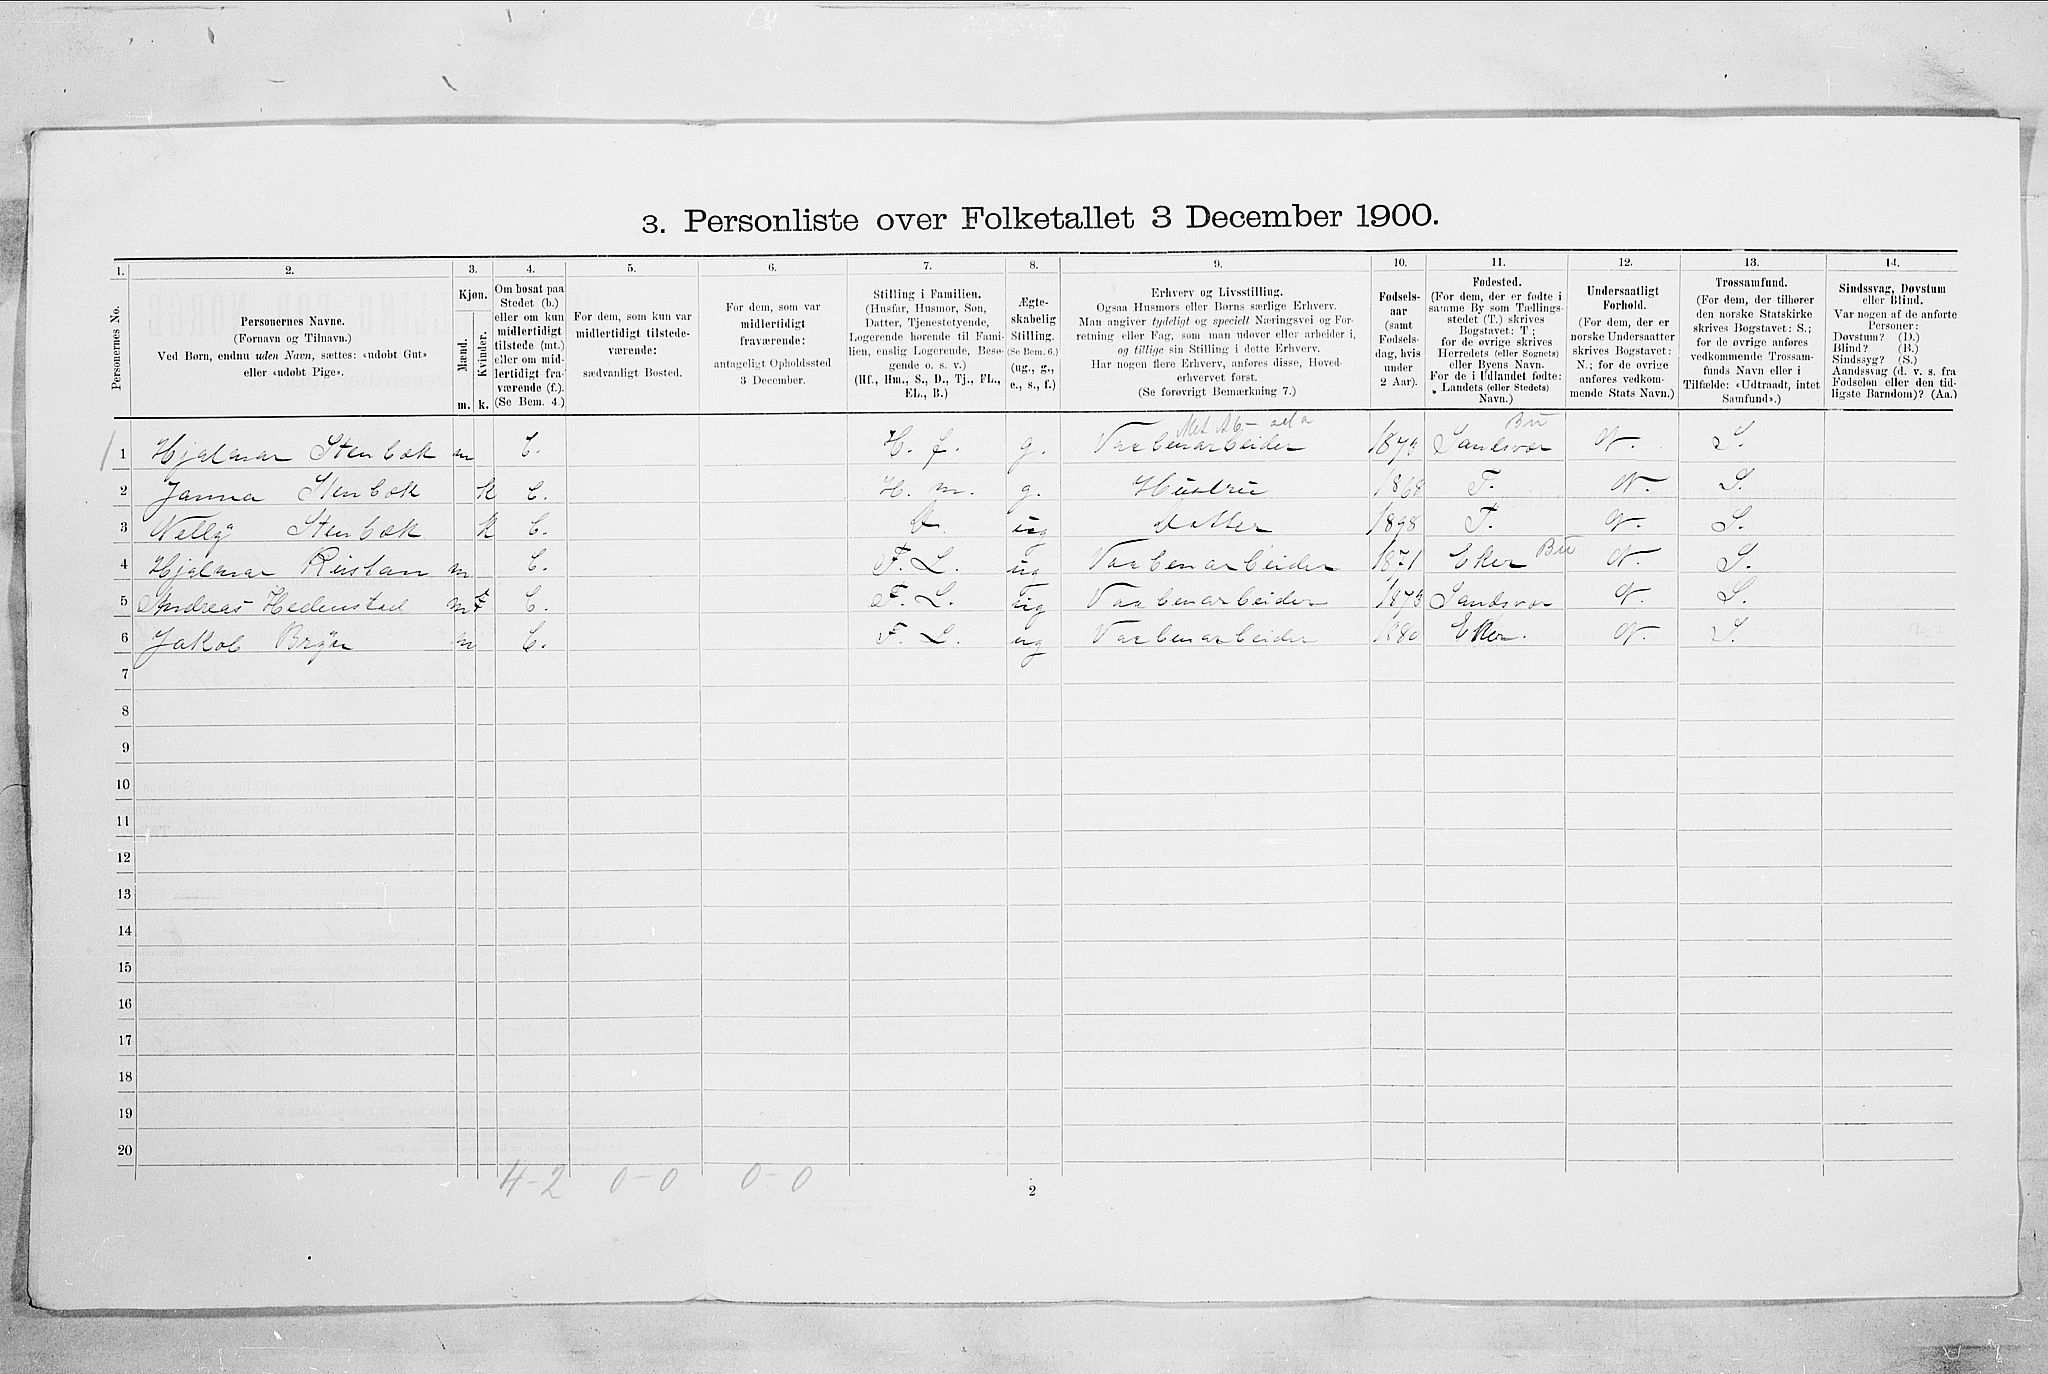 3. Personliste over Folketallet 3 December 1900.
1. 2. 3. 4. 5. 6. 7. 8. 9. 10. 11. 12. 13. 14.
Personernes No.
Personernes Navne.
(Fornavn og Tilnavn.)
Ved Børn, endnu uden Navn, sættes: «udøbt Gut»
eller «udøbt Pige».
Kjøn.
Mænd.
Kvinder.
m. k.
Om bosat paa
Stedet (b.)
eller om kun
midlertidigt
tilstede (mt.)
eller om mid-
lertidigt fra-
værende (f.).
(Se Bem. 4.)
For dem, som kun var
midlertidigt tilstede-
værende:
sædvanligt Bosted.
For dem, som var
midlertidigt
fraværende:
antageligt Opholdssted
3 December.
Stilling i Familien.
(Husfar, Husmor, Søn,
Datter, Tjenestetyende,
Logerende hørende til Fami-
lien, enslig Logerende, Besø-
gende o. s. v.)
(Hf., Hm., S., D., Tj., FL.,
EL., B.)
Ægte-
skabelig
Stilling.
(Se Bem. 6.)
(ug., g.,
e., s., f.)
Erhverv og Livsstilling.
Ogsaa Husmors eller Børns særlige Erhverv.
Man angiver tydeligt og specielt Næringsvei og For-
retning eller Fag, som man udøver eller arbeider i,
og tillige sin Stilling i dette Erhverv.
Har nogen flere Erhverv, anføres disse, Hoved-
erhvervet først.
(Se forøvrigt Bemærkning 7.)
Fødsels-
aar
(samt
Fødsels-
dag, hvis
under
2 Aar).
Fødested.
(For dem, der er fødte i
samme By som Tællings-
stedet (T.) skrives
Bogstavet: T.;
for de øvrige skrives
Herredets (eller Sognets)
eller Byens Navn.
For de i Udlandet fødte:
Landets (eller Stedets)
Navn.)
Undersaatligt
Forhold.
(For dem, der er
norske Undersaatter
skrives Bogstavet:
N.; for de øvrige
anføres vedkom-
mende Stats Navn.)
Trossamfund.
(For dem, der tilhører
den norske Statskirke
skrives Bogstavet: S.;
for de øvrige anføres
vedkommende Trossam-
funds Navn eller i
Tilfælde: «Udtraadt, intet
Samfund».)
Sindssvag, Døvstum
eller Blind.
Var nogen af de anførte
Personer:
Døvstum? (D.)
Blind? (B.)
Sindssyg? (S.)
Aandssvag (d. v. s. fra
Fødselen eller den tid-
ligste Barndom)? (Aa.)
1 Hjalmar Stenbæk m b. H. f. g. Vaabenarbeider 1873 Sandsvær N. S.
2 Janna Stenbæk k b. H. m. g. Hustru 1868 T. N. S.
3 Nelly Stenbæk k b. D. ug Datter 1898 T. N. S.
4 Hjalmar Rustan m b. F. L. ug Vaabenarbeider 1871 Eker N. S.
5 Andreas Hedenstad m b. F. L. ug Vaabenarbeider 1873 Sandsvær N. S.
6 Jakob m b. F. L. ug Vaabenarbeider 1880 Eker. N. S.
7
8
9
10
11
12
13
14
15
16
17
18
19
20
4-2 0-0 0-0
2